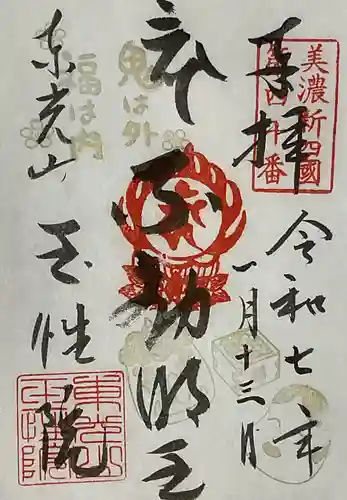 奉拝
美濃新四國
第四十番
令和七年
一月十三日
本不動明王
鬼は外
福は内
東光山
玉性院